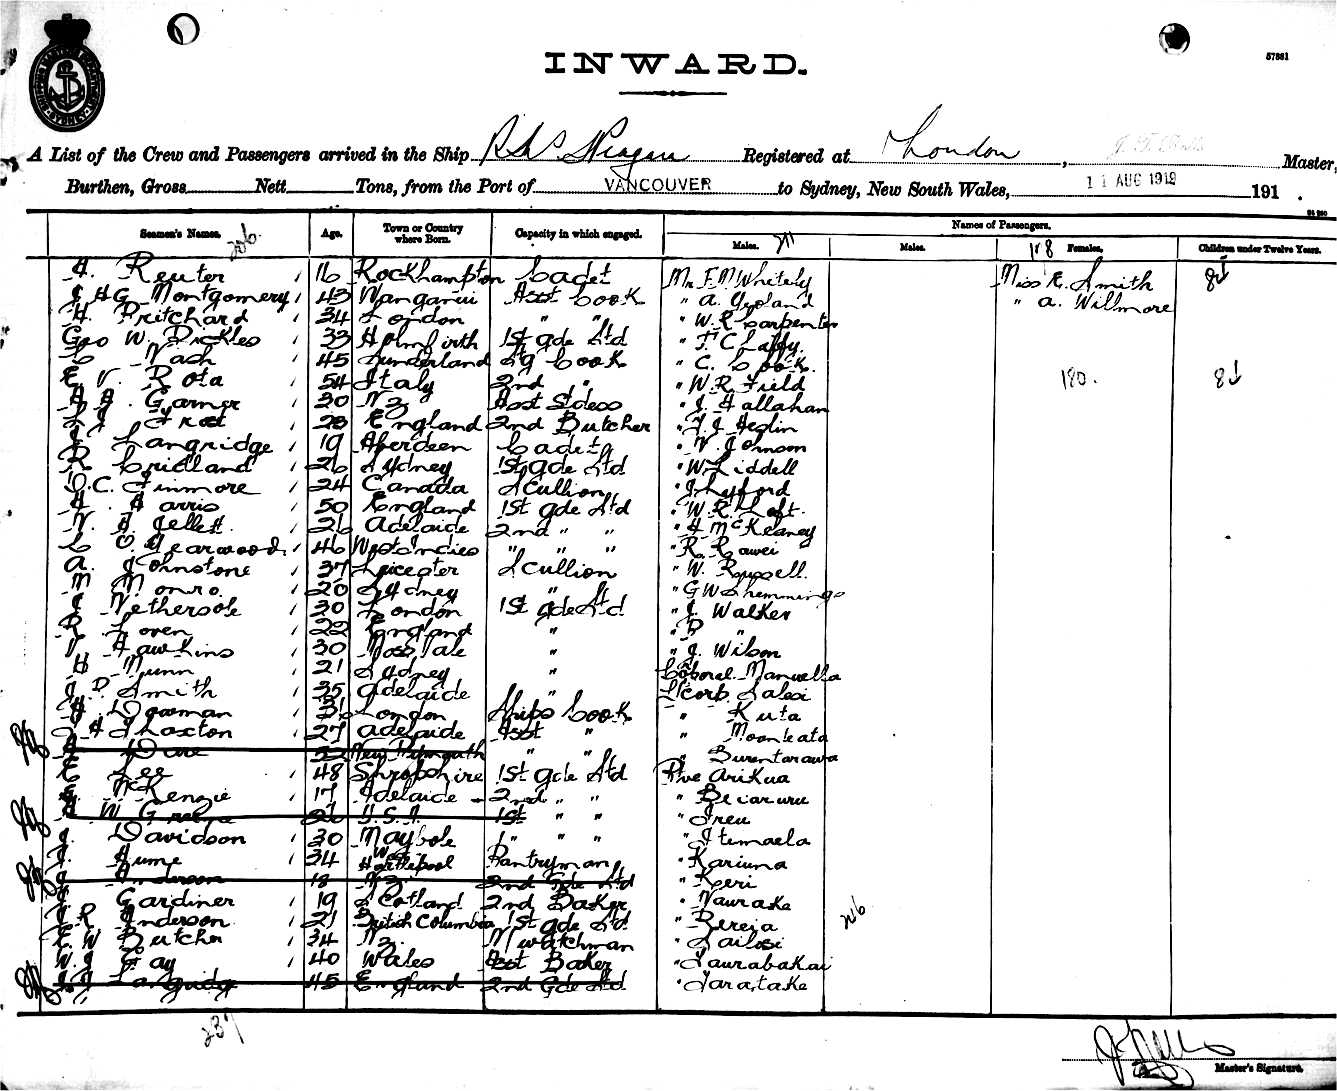 INWARD.
57881
A List of the Crew and Passengers arrived in the Ship R.M.S. Niagara Registered at London, Master,
Burthen, Gross Nett Tons, from the Port of VANCOUVER to Sydney, New South Wales, 11 AUG 1919 191 .
Seamen's Names. Age. Town or Country where Born. Capacity in which engaged. Names of Passengers.
Males. Males. Females. Children under Twelve Years.
H. Reuter 16 Rockhampton Cadet Mr F. M Whitely Miss K. Smith
J HG Montgomery 43 Wanganui Asst Cook " A. " A. Wilmore
H. Pritchard 34 London " " " W. R Carpenter
Geo W. Pickles 33 Holmfirth 1st gde Std " F C
C Nash 45 Sunderland Cook " C. Cook.
E V. Rota 54 Italy 2nd " " W. R Field 180.
Garner 30 NZ Asst Stdess " J. Hallahan
Frost 28 England 2nd Butcher " Heglin
Langridge 19 Aberdeen Cadet " V. Johnson
R Cridland 26 Sydney 1st gde Std " W Liddell
O.C. Finmore 24 Canada Scullion " J Lyford
H. Harris 50 England 1st gde Std " W. R Loft.
N. J Jellett. 26 Adelaide 2nd " " " H McKeaney
C O. Yearwood. 46 West Indies " " " " R. Rawei
A. Johnstone 37 Leicester Scullion " W. Russell.
M Monro. 20 Sydney " " G W
Nethersole 30 London 1st gde Std " J. Walker
R Loven 22 England " " P "
V Hawkins 30 Moss Vale " " J. Wilson
H Munn 21 Sydney "
J. P. Smith 35 Adelaide " L/Corp. Salesi
Dowman London Ships Cook " Kuta
H Thaxton 27 Adelaide Asst " " Moonteata
Dare 32 New Plymouth " " " Burentarawa
Lee 48 Shropshire 1st gde Std Pve Arikua
McKenzie 17 Adelaide 2nd " " " Beiaruru
W U.S.A. 1st " " " Ireu
J. Davidson 30 Maybole 1" " " " Itemaela
J. Hume 34 W Hartlepool Pantryman " Kariuna
Anderson 18 NZ 2nd Gde Std " Keri
Gardiner 19 Scotland 2nd Baker " Naurake
R Anderson 21 British Columbia 1st gde Std " Bereia
W Butcher 34 NZ. M watchman " Sailosi
W. J Gay 40 Wales Asst Baker " Taurabakai
Langridge 45 England 2nd Gde Std " Taratake
237
Master's Signature.